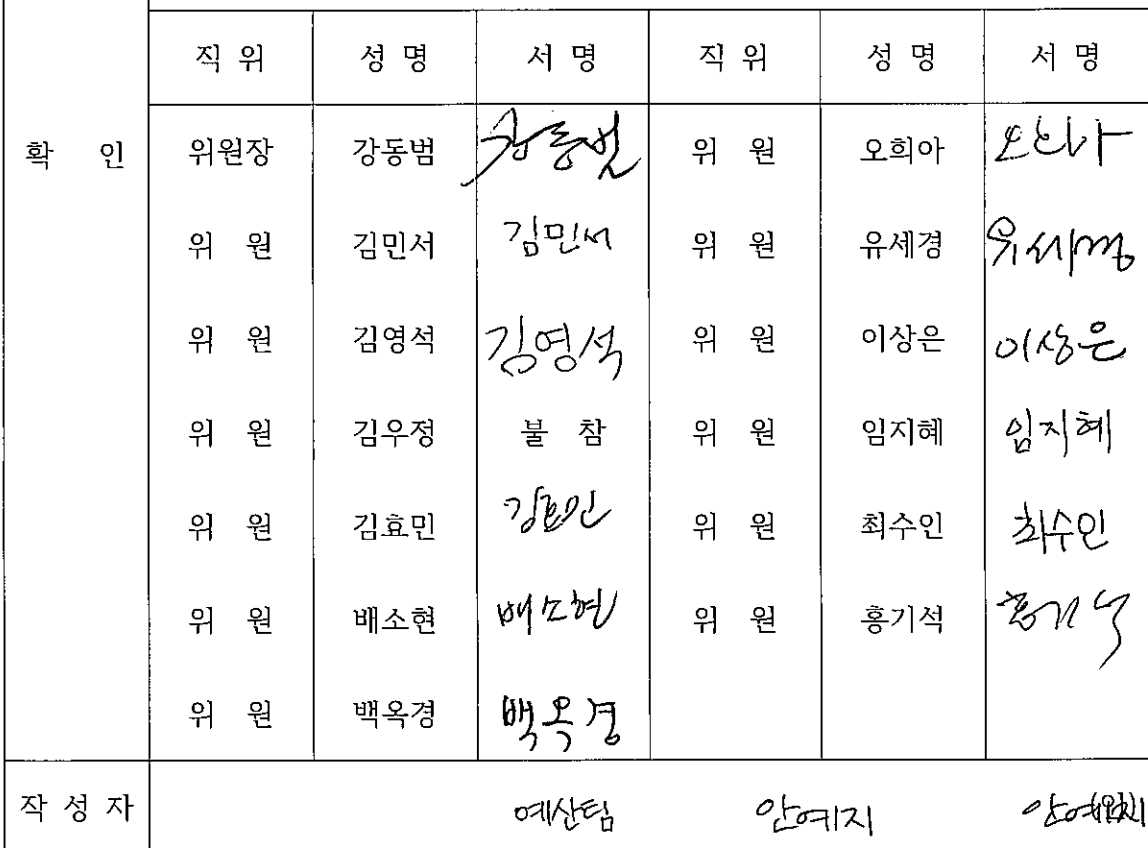 직 위 성 명 서 명 직 위 성 명 서 명
확 인 위원장 강동범 강동범 위 원 오희아
위 원 김민서 김민서 위 원 유세경 유세경
위 원 김영석 김영석 위 원 이상은 이상은
위 원 김우정 불 참 위 원 임지혜 임지혜
위 원 김효민 김효민 위 원 최수인 최수인
위 원 배소현 배소현 위 원 홍기석 홍기석
위 원 백옥경 백옥경
작 성 자 예산팀 안예지